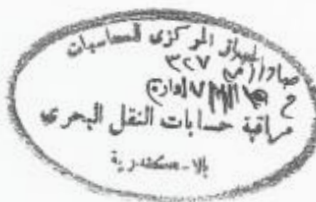 الجهاز المركزى للمحاسبات
صادر رقم ٣٢٧
مراقبة حسابات النقل البحرى
بالاسكندرية